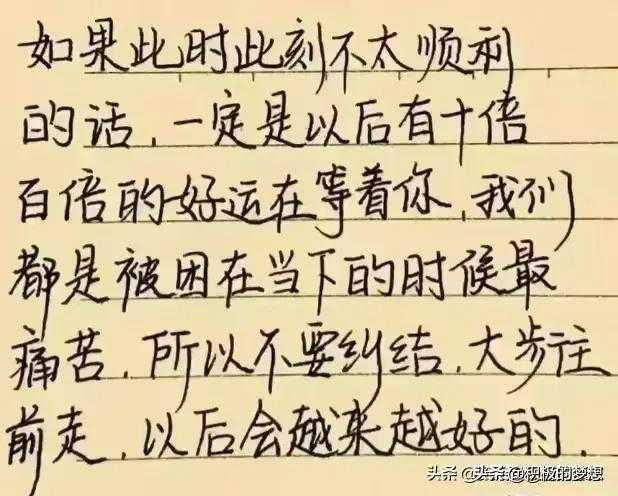 如果此时此刻不太顺利
的话，一定是以后有十倍
百倍的好运在等着你，我们
都是被困在当下的时候最
痛苦，所以不要纠结，大步往
前走，以后会越来越好的．
头条 @积极的梦想